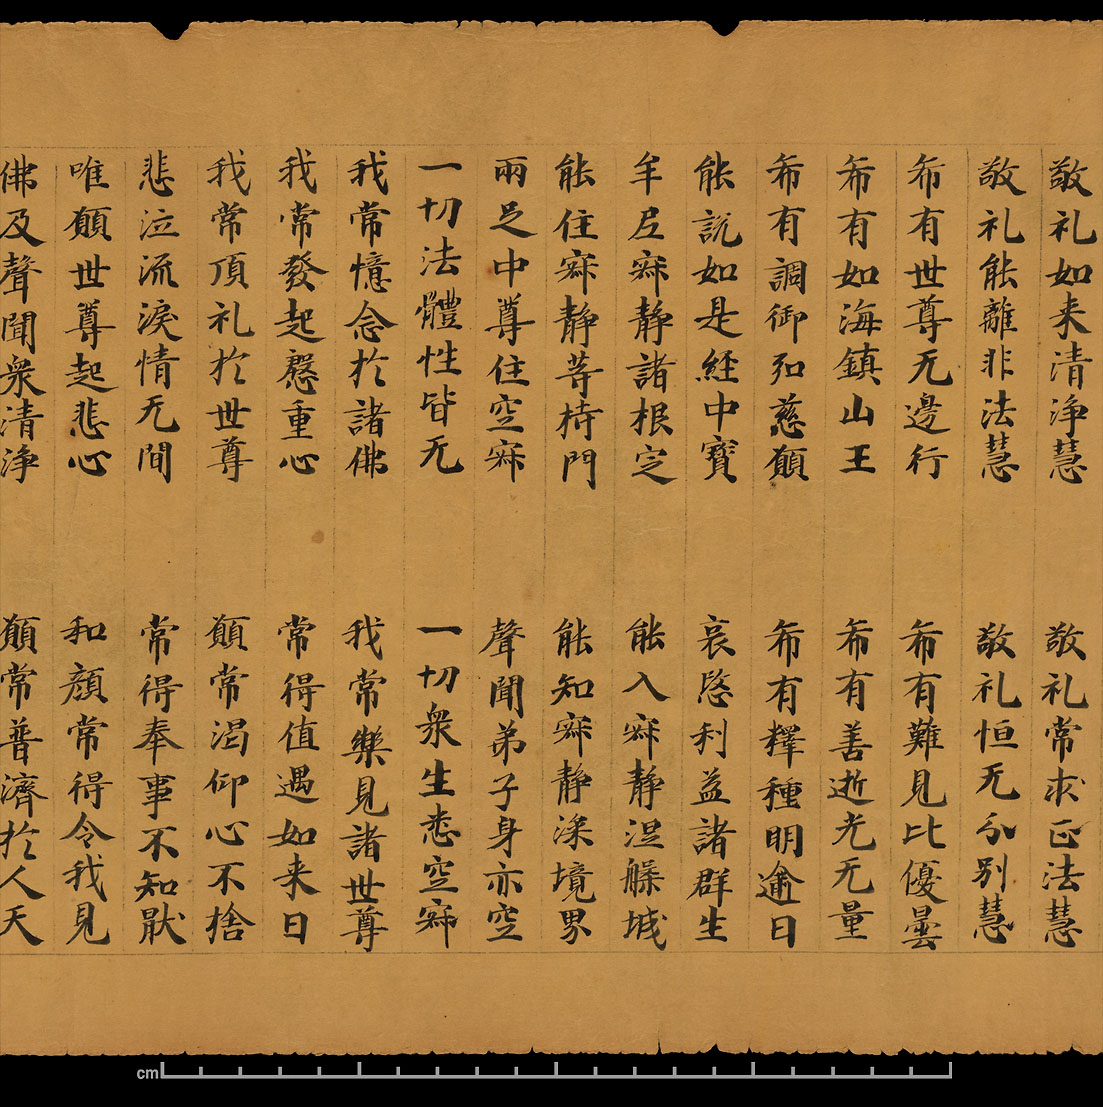 敬礼如来清浄慧　敬礼常求正法慧
敬礼能離非法慧　敬礼恒无分別慧
希有世尊无邊行　希有難見比優曇
希有如海鎮山王　希有善逝光无量
希有調御弘慈願　希有釋種明逾日
能說如是経中寶　哀愍利益諸群生
牟尼寂静諸根定　能入寂静涅槃城
能住寂静等持門　能知寂静深境界
兩足中尊住空寂　聲聞弟子身亦空
一切法體性皆无　一切衆生悉空寂
我常憶念於諸佛　我常樂見諸世尊
我常發起慇重心　常得值遇如来日
我常頂礼於世尊　願常渴仰心不捨
悲泣流淚情无間　常得奉事不知厭
唯願世尊起悲心　和顏常得令我見
佛及聲聞衆清浄　願常普濟於人天
cm